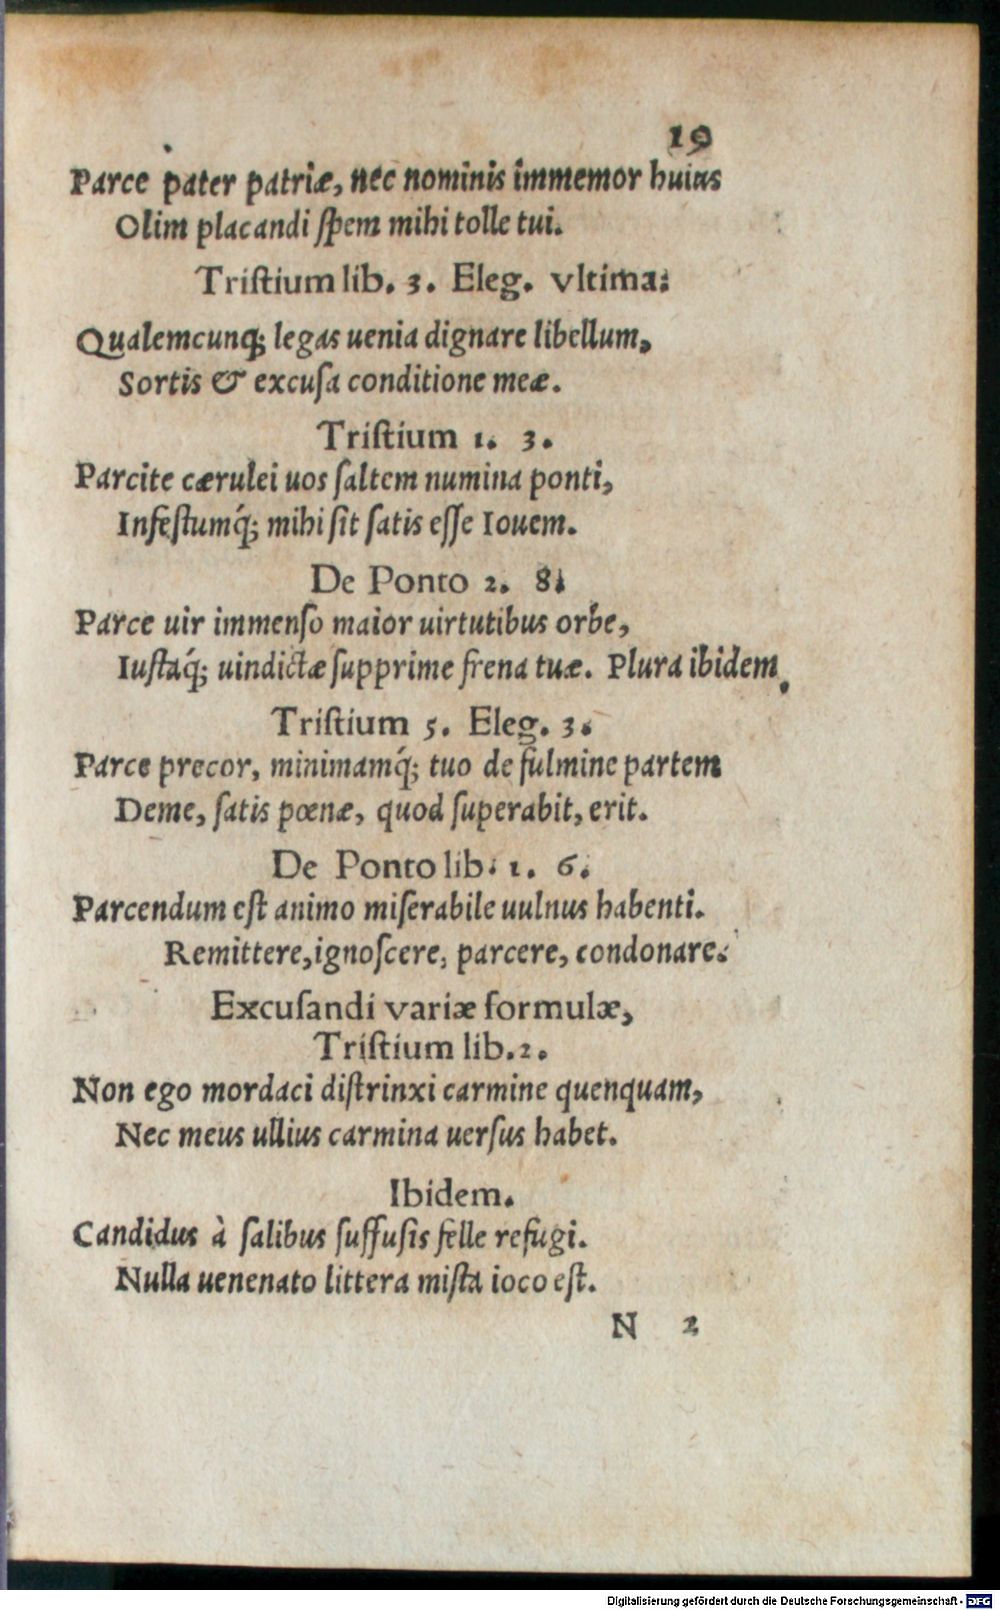 19
Parce pater patriæ, nec nominis immemor huius
Olim placandi ſpem mihi tolle tui.
Triſtium lib. 3. Eleg. vltima.
Qualemcunq; legas uenia dignare libellum,
Sortis & excuſa conditione meæ.
Triſtium 1. 3.
Parcite cærulei uos ſaltem numina ponti,
Infeſtumq́; mihi ſit ſatis eſſe Iouem.
De Ponto 2. 8.
Parce uir immenſo maior uirtutibus orbe,
Iuſtaq́; uindictæ ſupprime frena tuæ. Plura ibidem.
Triſtium 5. Eleg. 3.
Parce precor, minimamq́; tuo de fulmine partem
Deme, ſatis pœnæ, quod ſuperabit, erit.
De Ponto lib. 1. 6.
Parcendum eſt animo miſerabile uulnus habenti.
Remittere, ignoſcere, parcere, condonare.
Excuſandi variæ formulæ,
Triſtium lib. 2.
Non ego mordaci diſtrinxi carmine quenquam,
Nec meus ullius carmina uerſus habet.
Ibidem.
Candidus à ſalibus ſuffuſis felle refugi.
Nulla uenenato littera miſta ioco eſt.
N 2
Digitalisierung gefördert durch die Deutsche Forschungsgemeinschaft - DFG